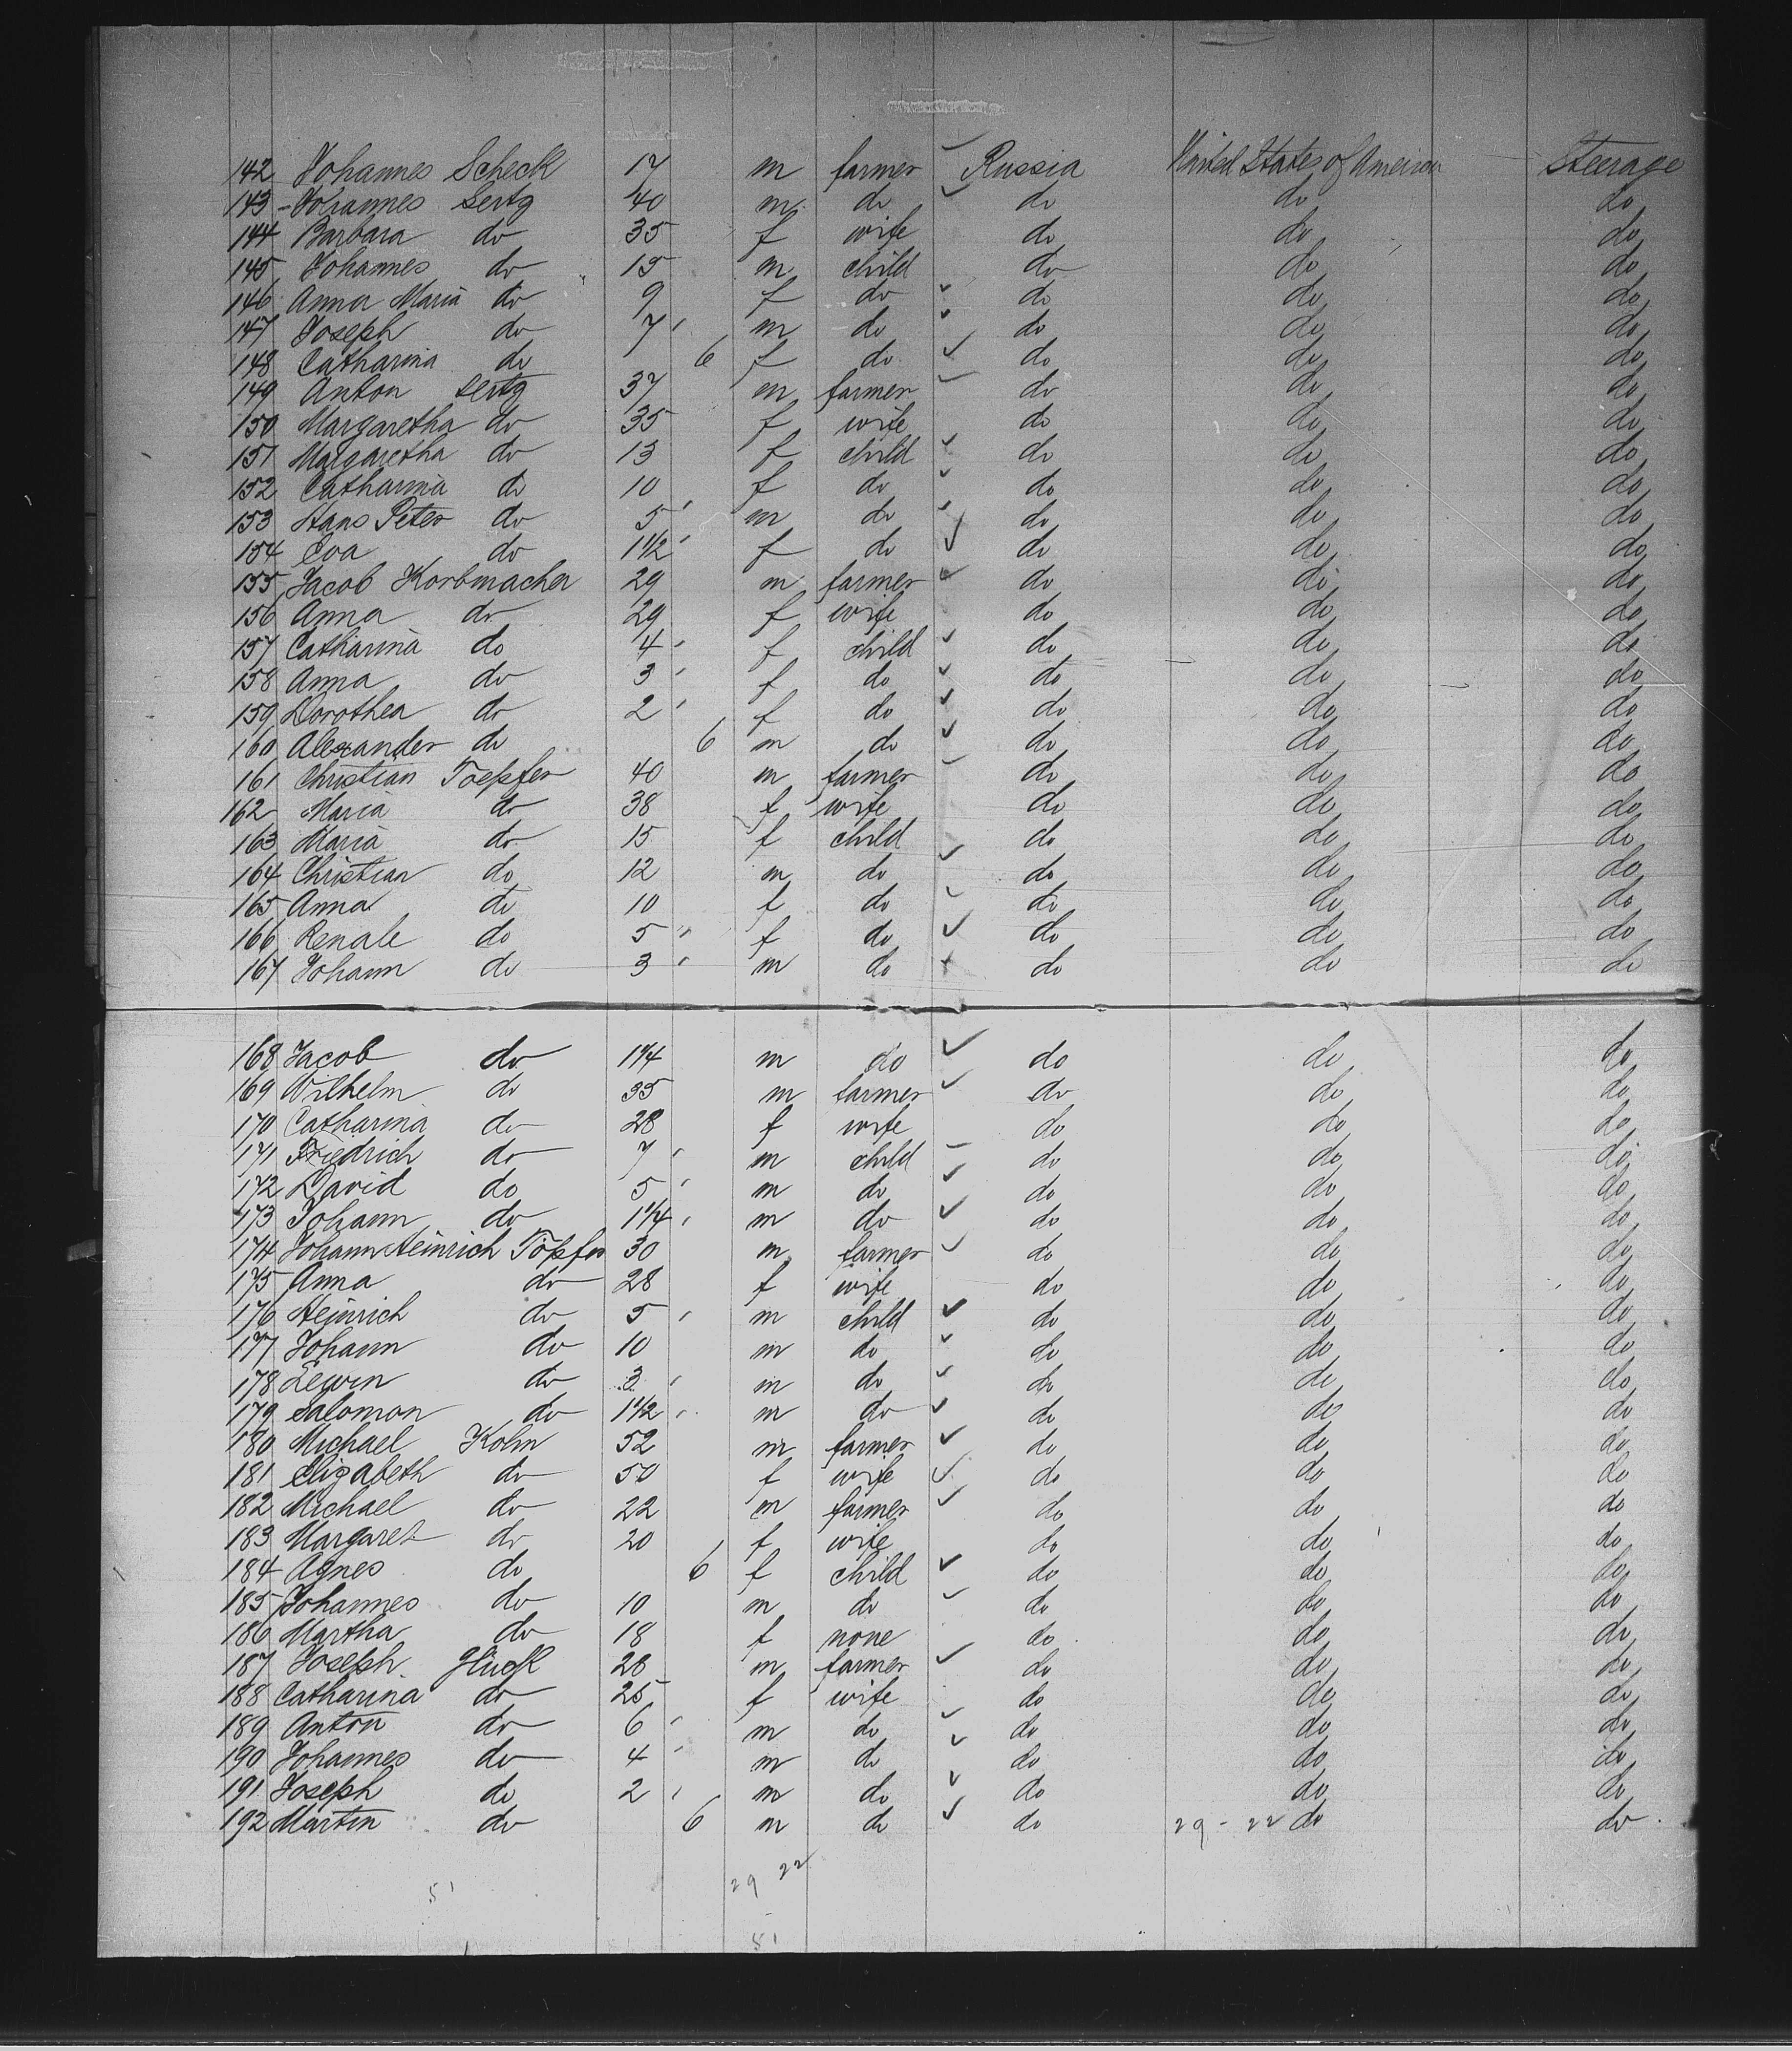 142 Johannes Scheck 17 m farmer Russia United States of America Steerage
143 - Johannes Sertg 40 m do do do do
144 Barbara do 35 f wife do do do
145 Johannes do 15 m child do do do
146 Anna Maria do 9 f do do do do
147 Joseph do 7 m do do do do
148 Catharina do 6 f do do do do
149 Anton Sertg 37 m farmer do do do
150 Margaretha do 35 f wife do do do
151 Margaretha do 13 f child do do do
152 Catharina do 10 f do do do do
153 Hans Peter do 5 m do do do do
154 Eva do 1 1/2 f do do do do
155 Jacob Korbmacher 29 m farmer do do do
156 Anna do 29 f wife do do do
157 Catharina do 4 f child do do do
158 Anna do 3 f do do do do
159 Dorothea do 2 f do do do do
160 Alexander do 6 m do do do do
161 Christian Toepfer 40 m farmer do do do
162 Maria do 38 f wife do do do
163 Maria do 15 f child do do do
164 Christian do 12 m do do do do
165 Anna do 10 f do do do do
166 Renate do 5 f do do do do
167 Johann do 3 m do do do do
168 Jacob do 1 1/4 m do do do do
169 Wilhelm do 35 m farmer do do do
170 Catharina do 28 f wife do do do
171 Friedrich do 7 m child do do do
172 David do 5 m do do do do
173 Johann do 1 1/4 m do do do do
174 Johann Heinrich Töpfer 30 m farmer do do do
175 Anna do 28 f wife do do do
176 Heinrich do 5 m child do do do
177 Johann do 10 m do do do do
178 Lewin do 3 m do do do do
179 Salomon do 1 1/2 m do do do do
180 Michael Kolm 52 m farmer do do do
181 Elizabeth do 50 f wife do do do
182 Michael do 22 m farmer do do do
183 Margaret do 20 f wife do do do
184 Agnes do 6 f child do do do
185 Johannes do 10 m do do do do
186 Martha do 18 f none do do do
187 Joseph Glück 28 m farmer do do do
188 Catharina do 25 f wife do do do
189 Anton do 6 m do do do do
190 Johannes do 4 m do do do do
191 Joseph do 2 m do do do do
192 Martin do 6 m do do 29 - 22 do do
29 22
51
51